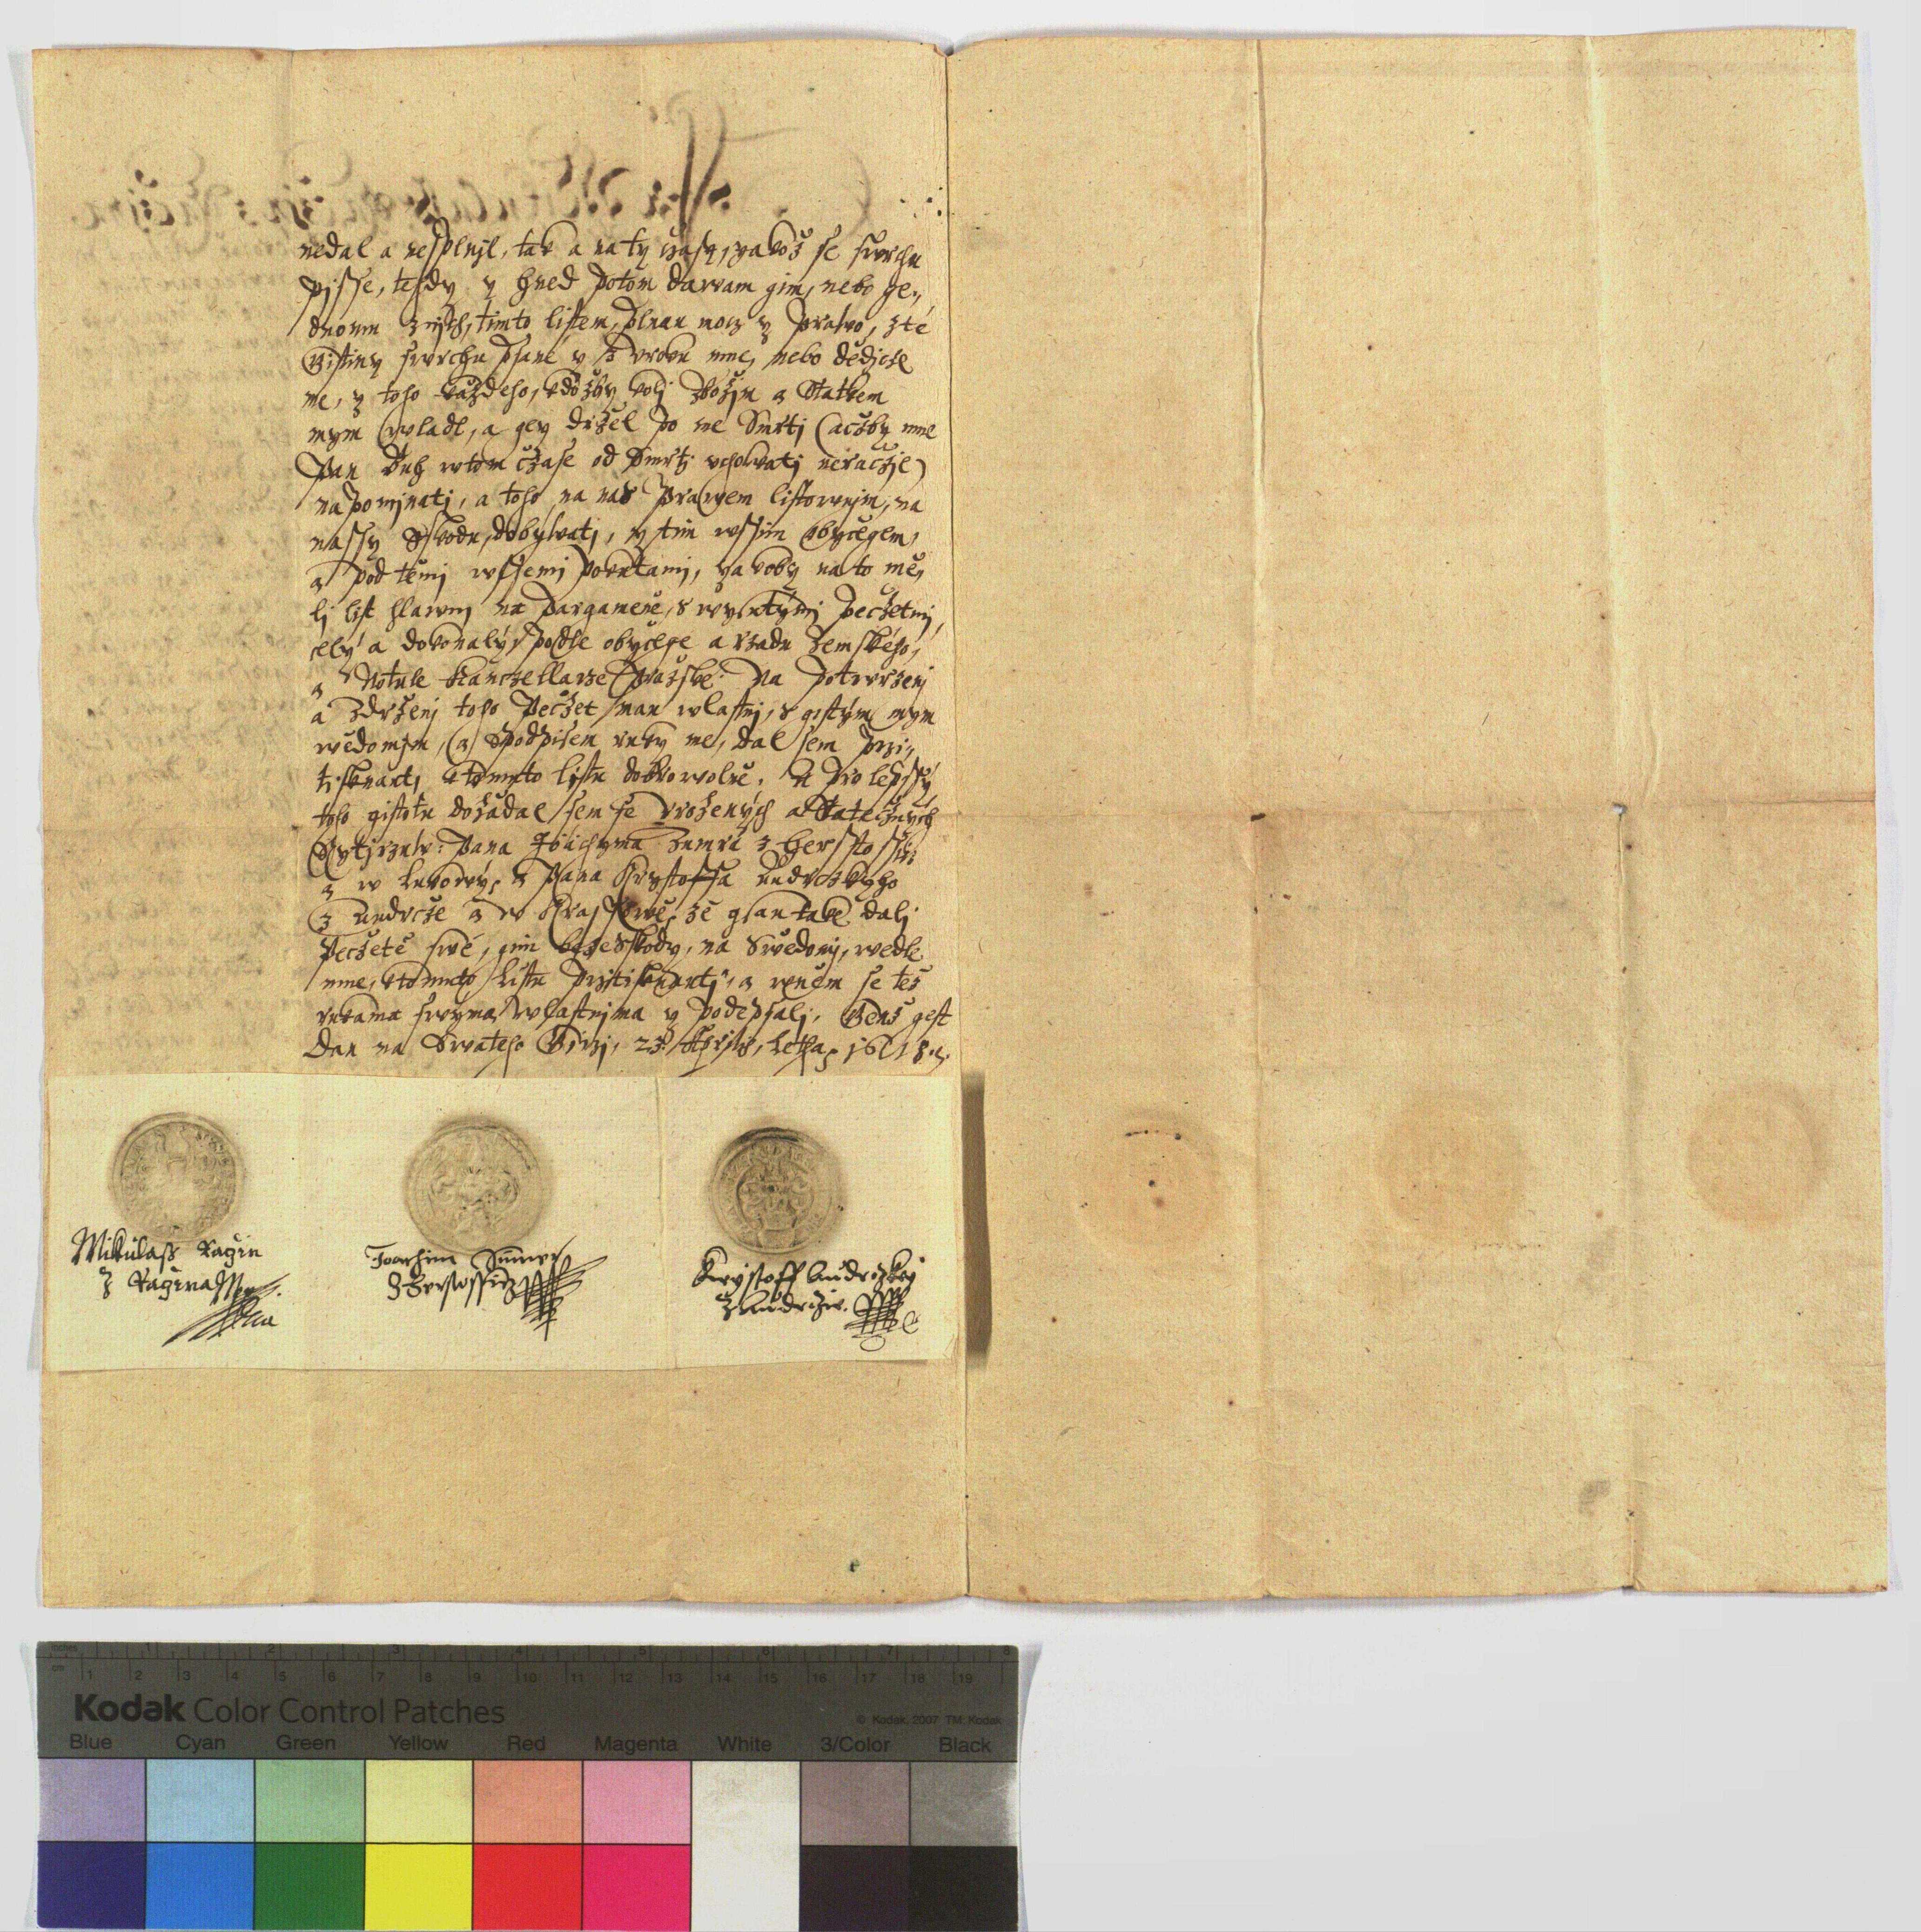 nedal a nesplnil, tak a na ty czasy, yakož se swrchu
pisse, tehdy y hned potom dawam gim, nebo ge„
dnomu z nich, timto listem, plnau mocz y prawo, z té
Gistiny swrchu psané y z vroku mne, nebo dědicze
me, y toho každeho, kdožby koli zbožim a Statkem
mym wladl, a gey držel po me Smrti (aczby mne
Pan Buh w tom čzase od Smrti vchowati neračžil)
napominati, a toho na nas prawem listownim, na
nassy Sskodu, dobywati, y tim wssim obyčegem,
a pod těmi wssemi pokutami, yakoby na to mě„
li list hlawnj na pargameně, s wyrytými pečzetmi,
celý a dokonalý, podle obyčege a rzadu Zemského,
a Notule Kanczellarze Pražské. Na potwrzenj
a zdrženj toho Pečzet swau wlastnj, s gistým mym
wědomjm, a Spodpisem ruky mé, dal sem przi„
tisknauti k tomuto listu dobrowolně. A pro lepssý
toho gistotu dožádal sem se Vrozených a Statečzných
Rytirzuw: Pana Joachyma Zumra z Herstossicz
a w Lukowý, a Pana Krystoffa Audrczkyho
z Audrcze a w Kraskowě, že gsau také dali
Peczetě swé, gim beze Sskody, na Swědomj, wedle
mne, k tomuto Listu przitisknauti, a w něm se též
rukama swyma wlastnjma y podepsali. Genž gest
Dan na Swateho Girzi, 23. Aprilis, Letha 1618.
Mikulass Kagin
z Kagina
Joachim Zumr
z Herstossicz
Krystoff Audrczky
z Audrcze
inches 1 2 3 4 5 6 7 8
cm 1 2 3 4 5 6 7 8 9 10 11 12 13 14 15 16 17 18 19
Kodak Color Control Patches
© Kodak, 2007 TM: Kodak
Blue Cyan Green Yellow Red Magenta White 3/Color Black